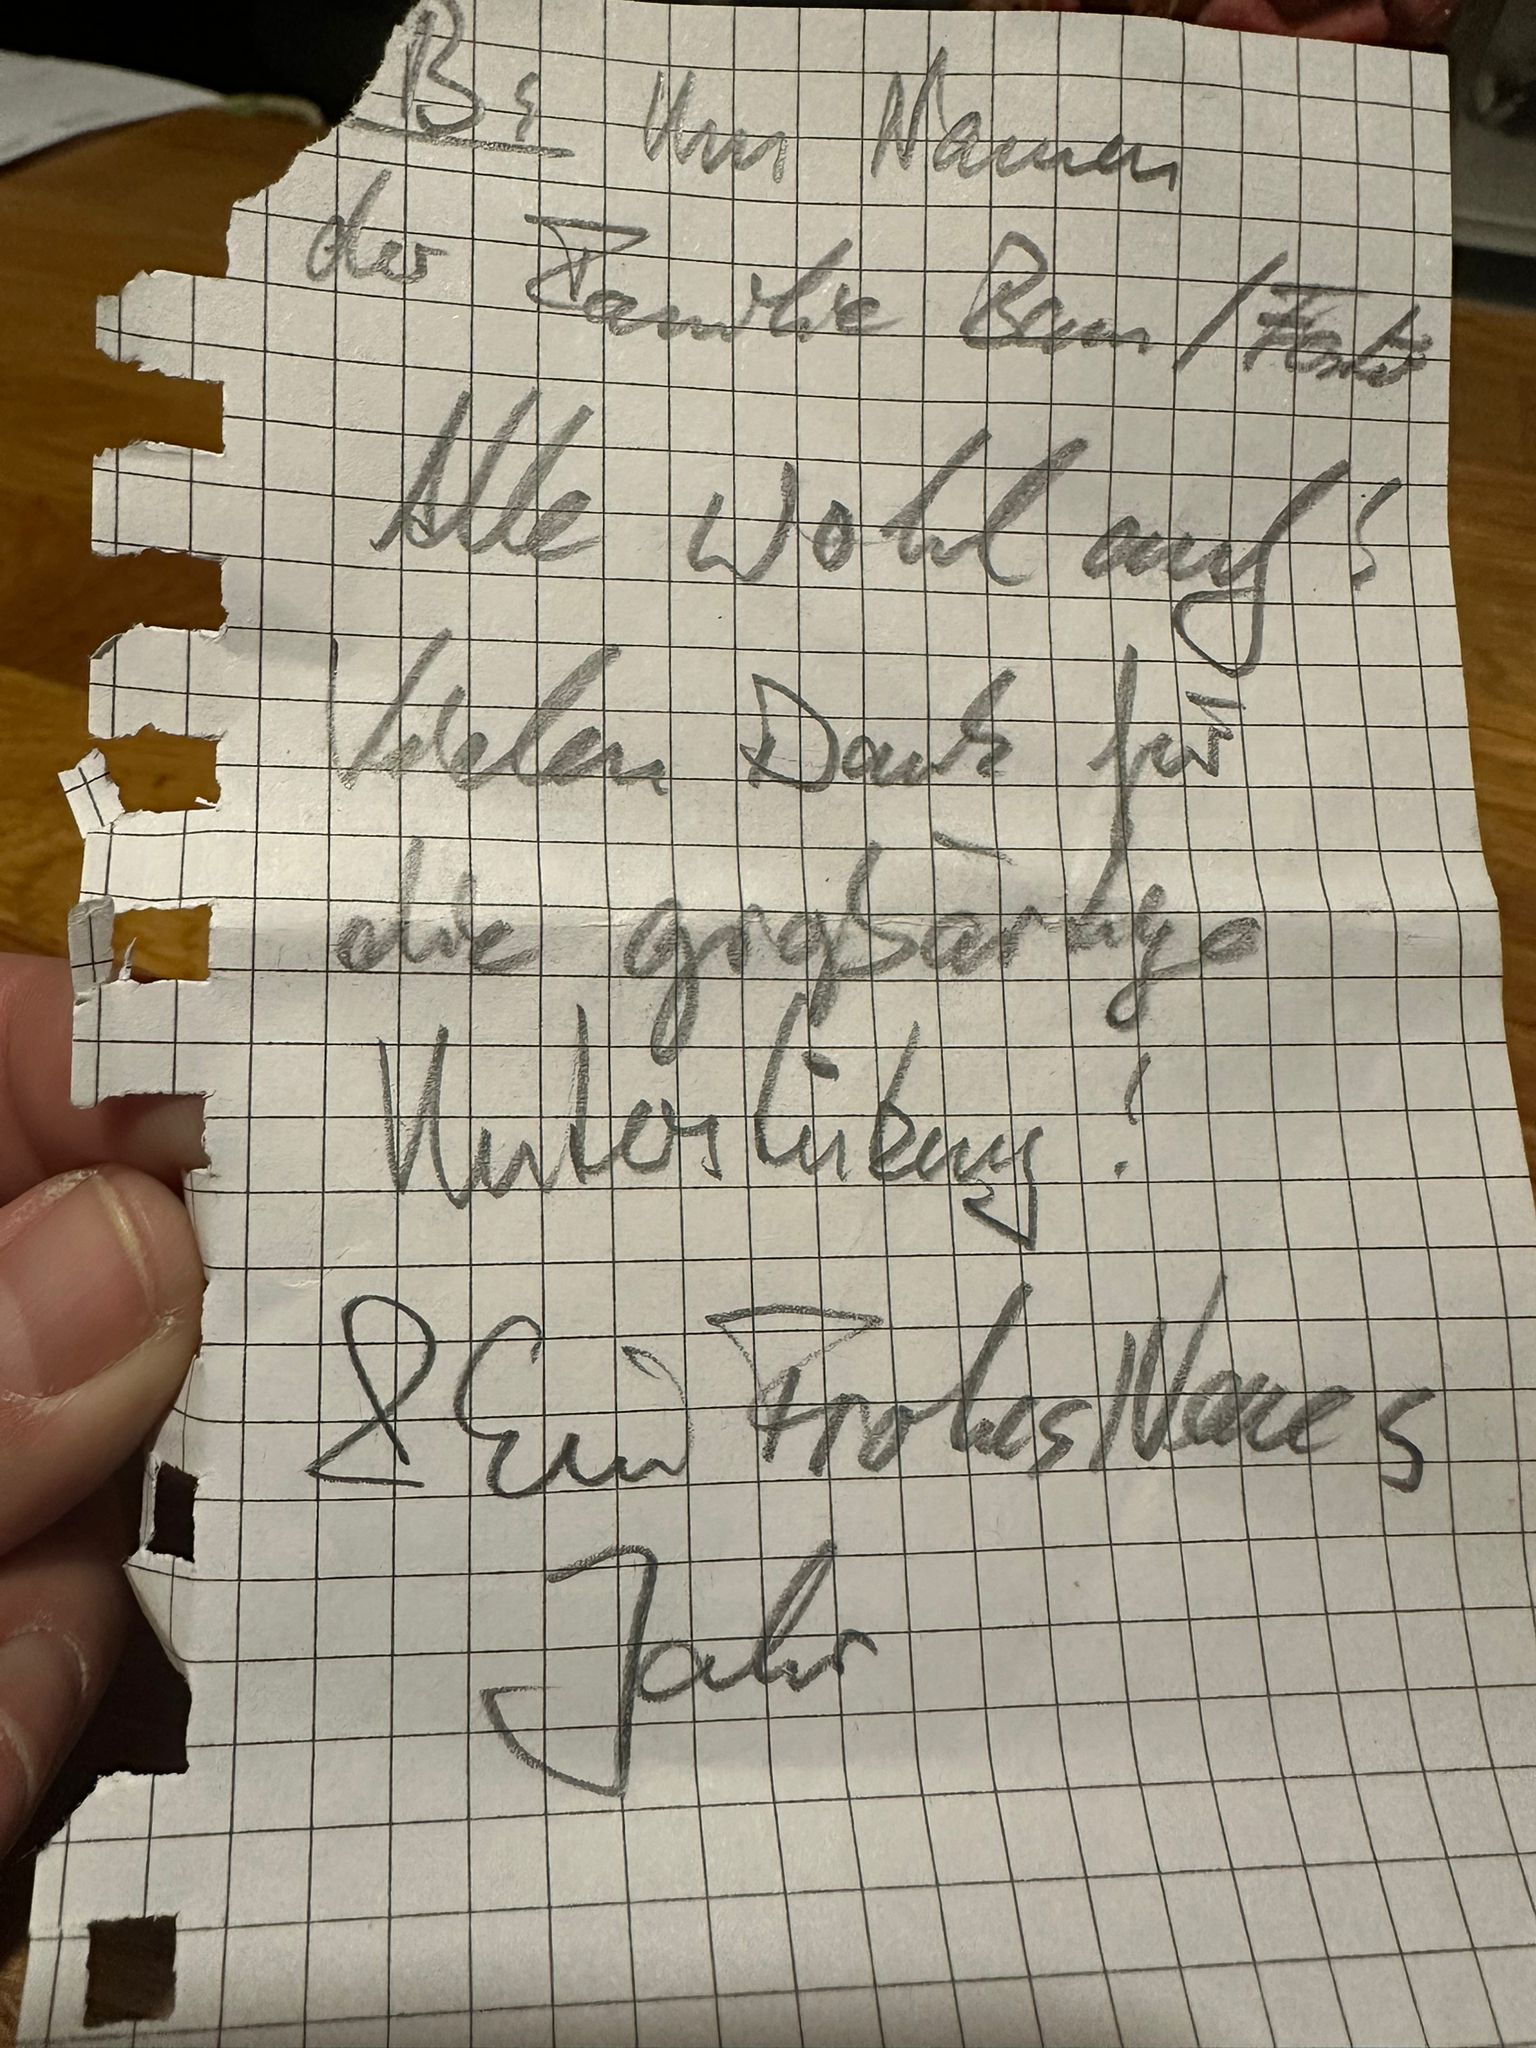 Im Namen
der Familie
Alle wohl auf!
Vielen Dank für
die großartige
Unterstützung!
& Ein Frohes Neues
Jahr